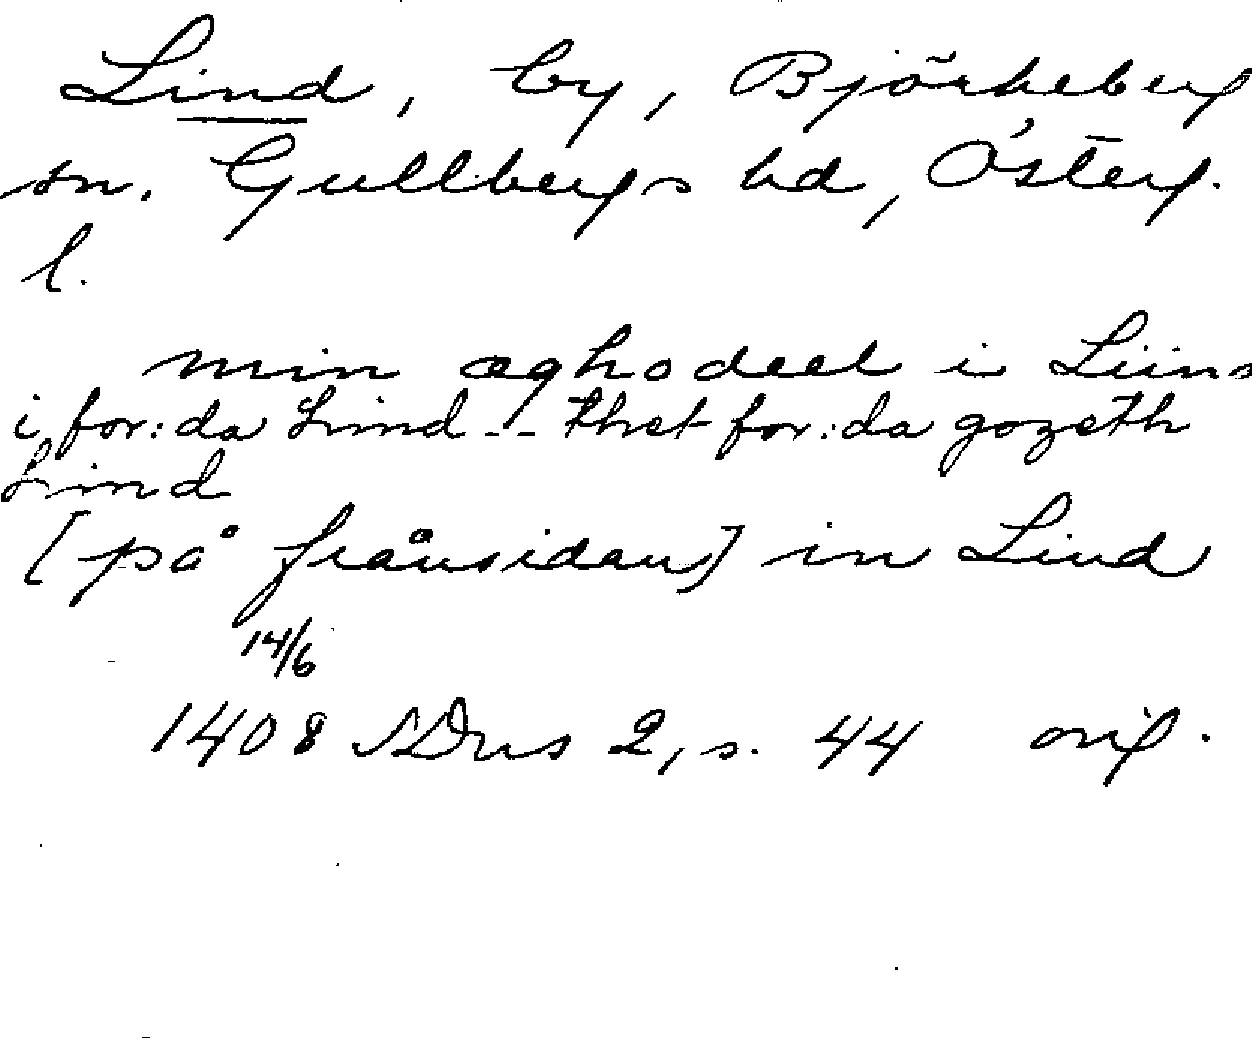 Lind, by, Björkeberg
sn. Gullbergs hd, Österg.
l.
min æghodeel i Liins
i for:da Lind -- thet for:da gozeth
Lind
[på frånsidan] in Lind
14/6
1408 SDns 2, s. 44 orig.